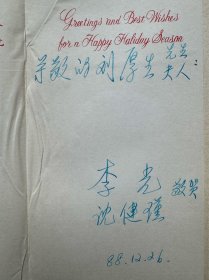 Greetings and Best Wishes
for a Happy Holiday Season
尊敬的刘厚生先生
夫人：
李光
沈健瑾
敬贺
88.12.26.